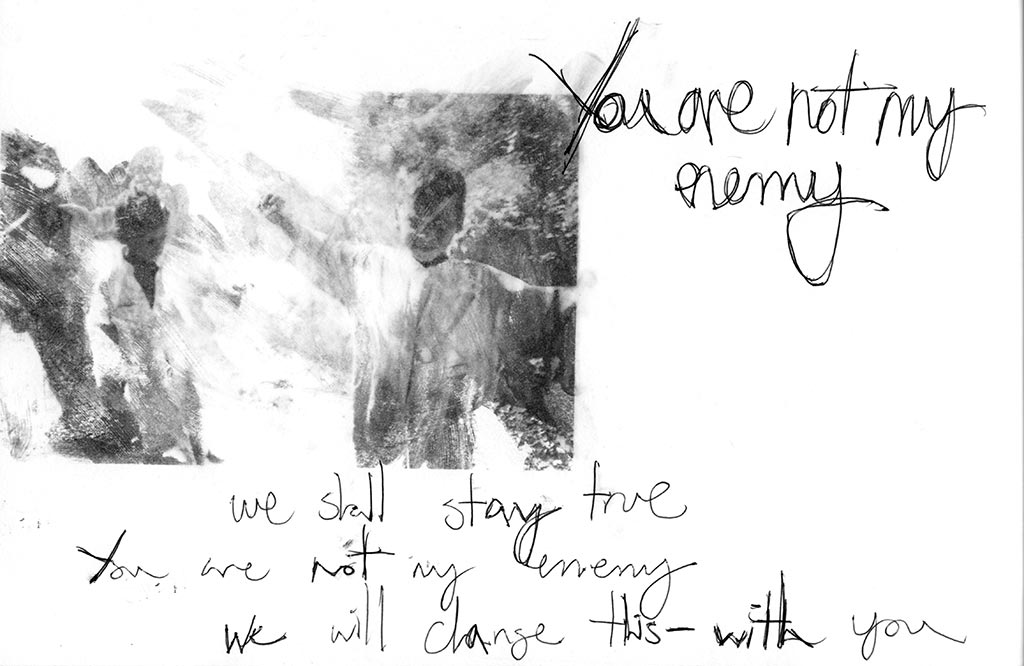 You are not my
enemy
we shall stay true
You are not my enemy
we will change this - with you